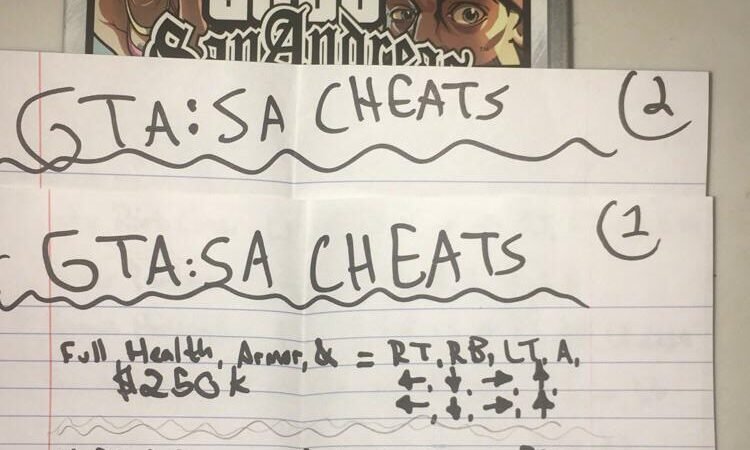 San Andreas
GTA:SA CHEATS (2
GTA:SA CHEATS (1
Full Health, Armor, & = RT, RB, LT, A,
$250k ←, ↓, →, ↑,
←, ↓, →, ↑